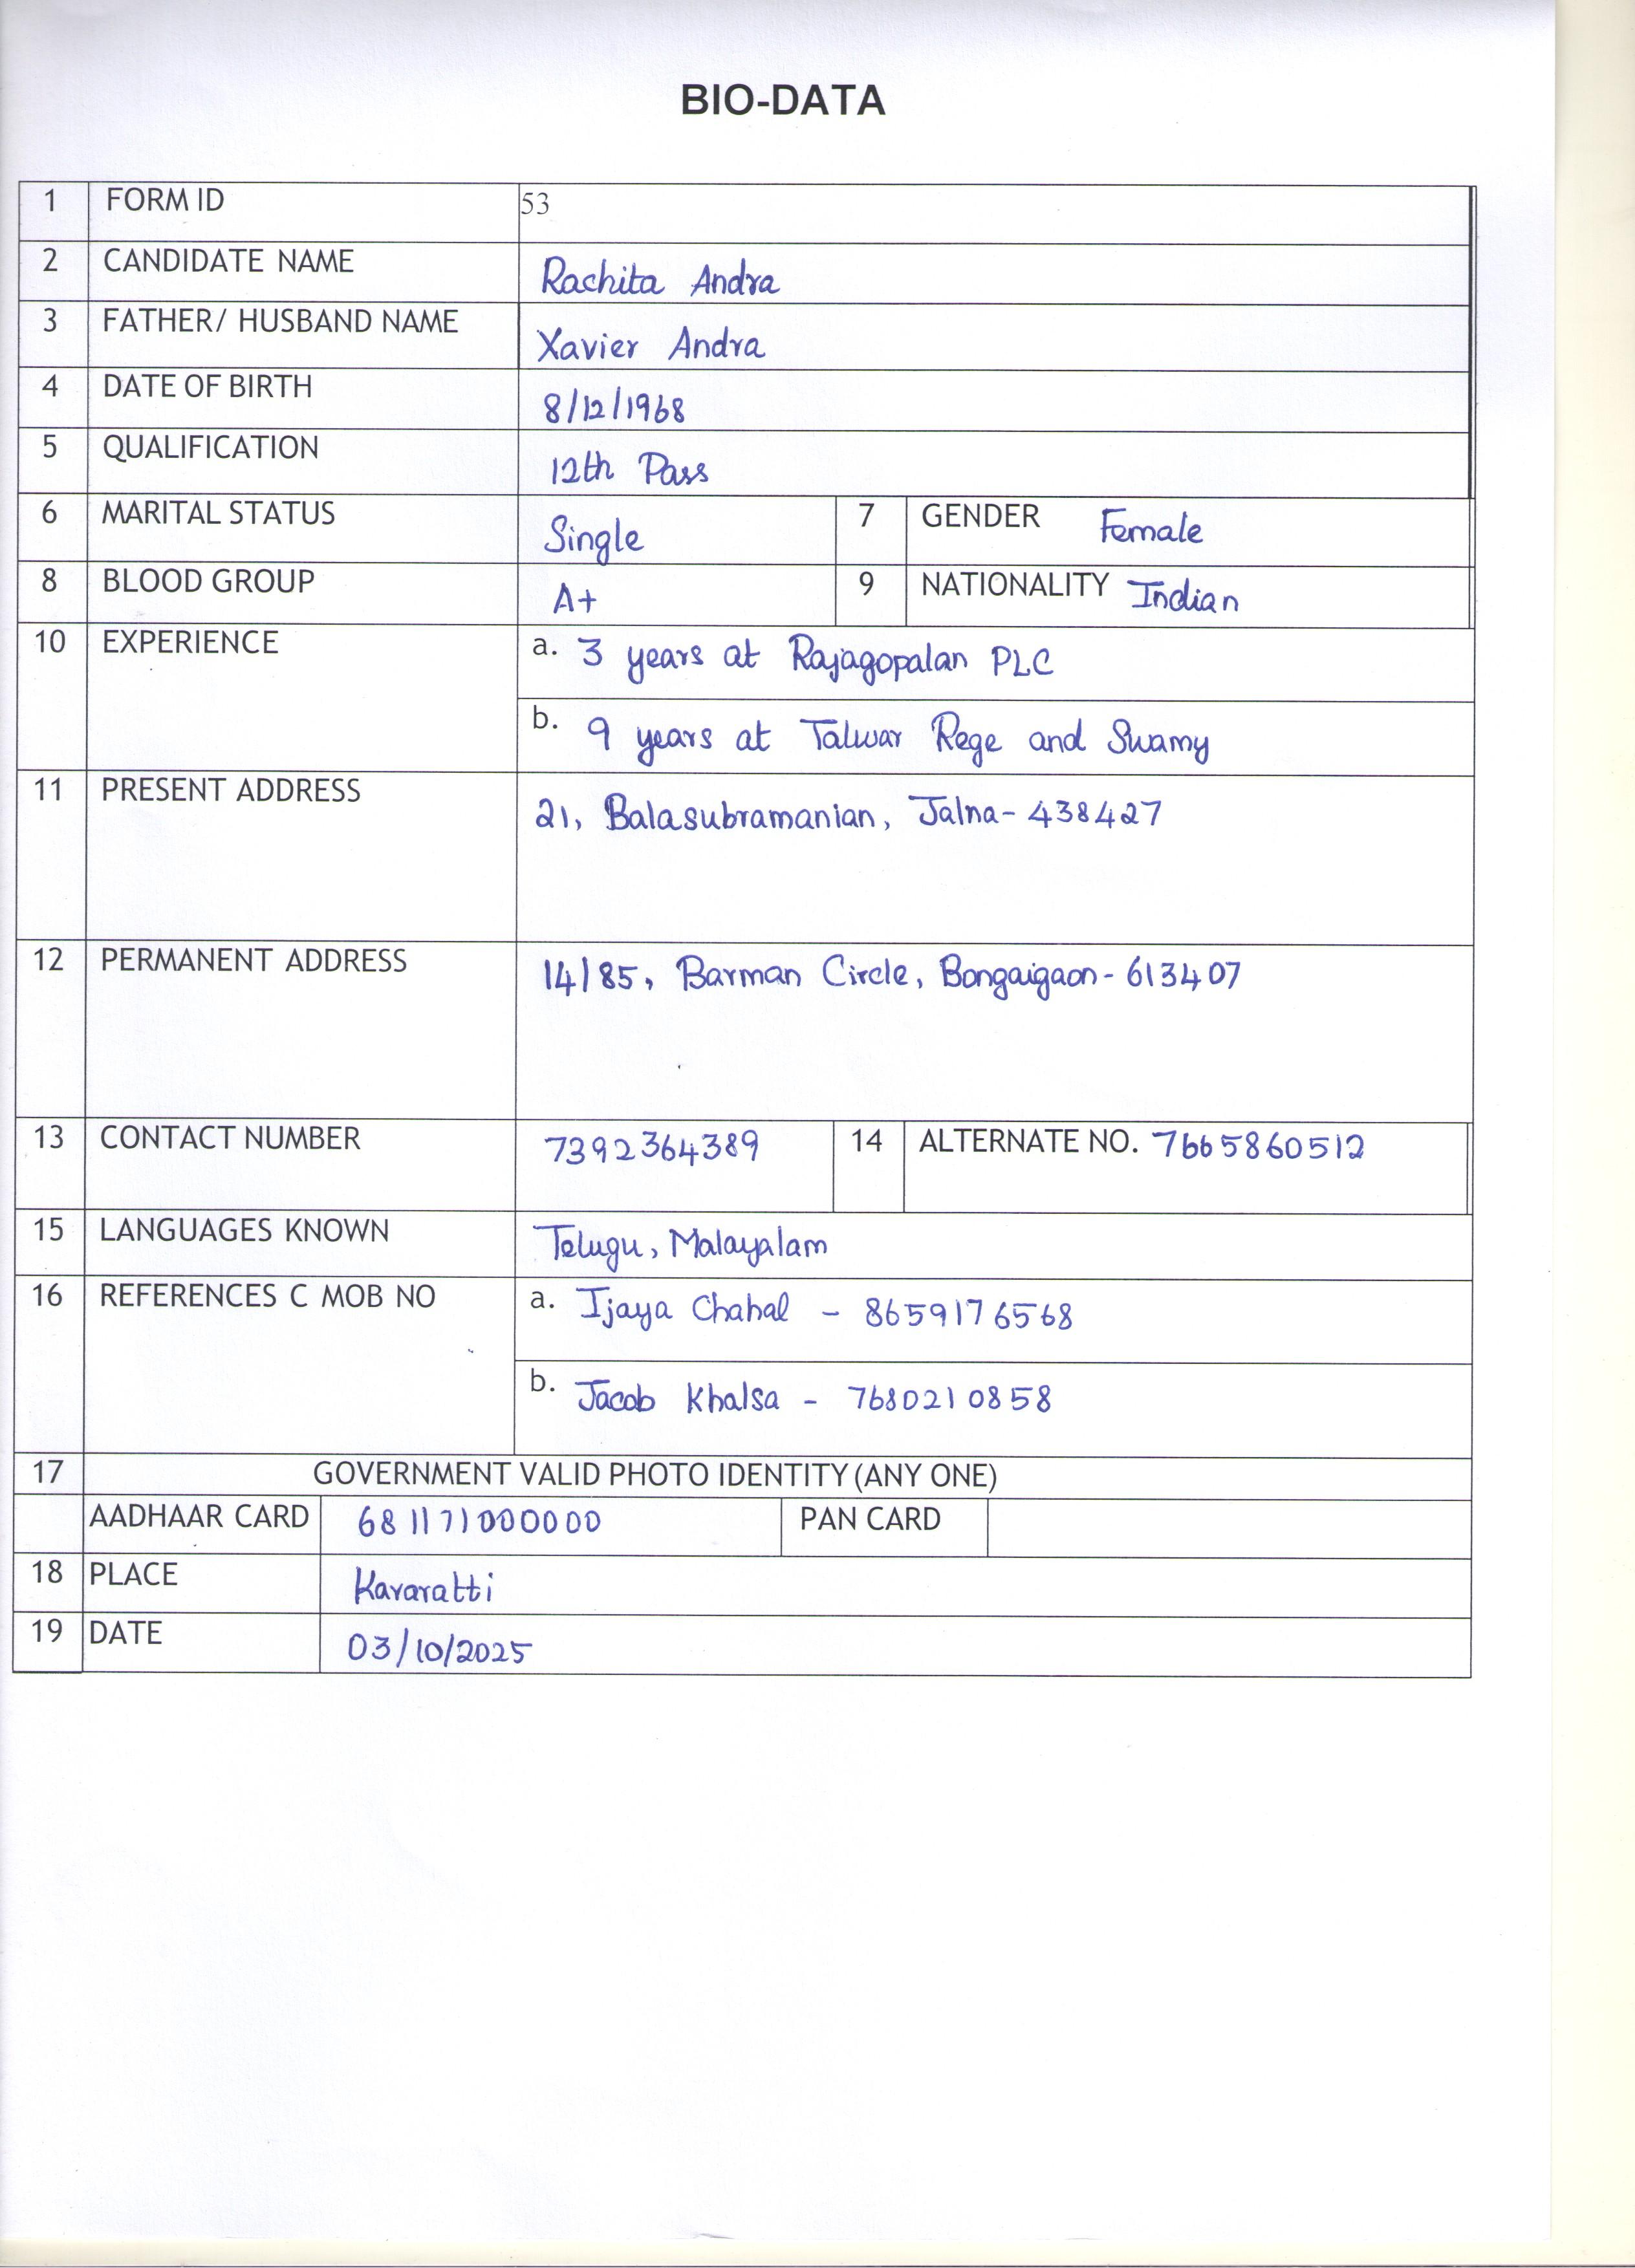 BIO-DATA
1 FORM ID 53
2 CANDIDATE NAME Rachita Andra
3 FATHER/ HUSBAND NAME Xavier Andra
4 DATE OF BIRTH 8/12/1968
5 QUALIFICATION 12th Pass
6 MARITAL STATUS Single 7 GENDER Female
8 BLOOD GROUP A+ 9 NATIONALITY Indian
10 EXPERIENCE a. 3 years at Rajagopalan PLC
b. 9 years at Talwar Rege and Swamy
11 PRESENT ADDRESS 21, Balasubramanian, Jalna- 438427
12 PERMANENT ADDRESS 14/85, Barman Circle, Bongaigaon- 613407
13 CONTACT NUMBER 7392364389 14 ALTERNATE NO. 7665860512
15 LANGUAGES KNOWN Telugu, Malayalam
16 REFERENCES C MOB NO a. Ijaya Chahal - 8659176568
b. Jacob Khalsa - 7680210858
17 GOVERNMENT VALID PHOTO IDENTITY (ANY ONE)
AADHAAR CARD 681171000000 PAN CARD
18 PLACE Kavaratti
19 DATE 03/10/2025